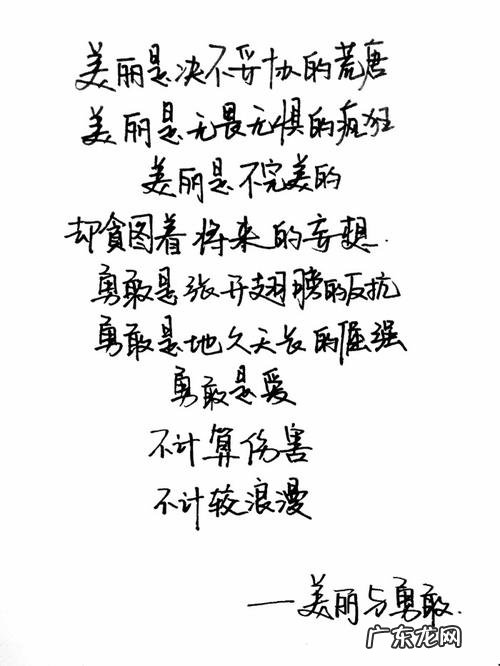 美丽是决不妥协的荒唐
美丽是无畏无惧的疯狂
美丽是不完美的
却贪图着将来的妄想.
勇敢是张开翅膀的反抗
勇敢是地久天长的倔强
勇敢是爱
不计算伤害
不计较浪漫
——美丽与勇敢.
广东龙网